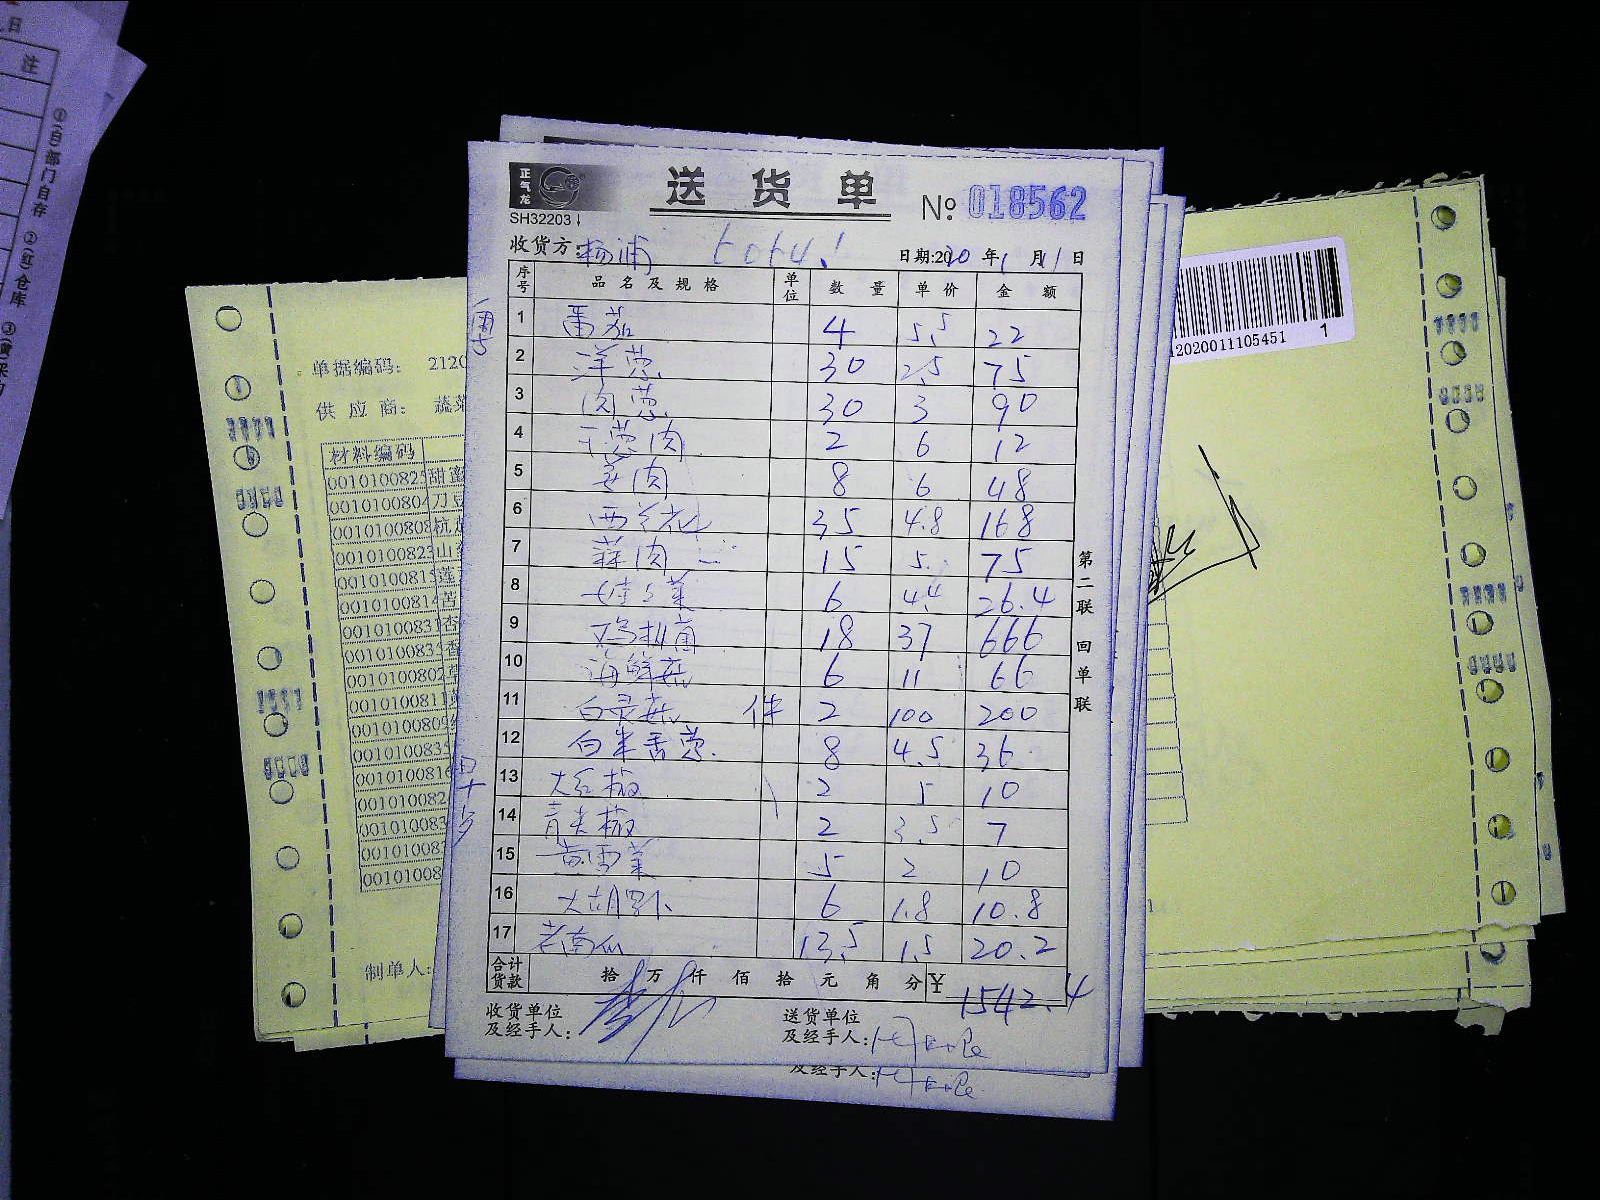 正气龙
SH32203
送货单
№ 018562
收货方: 杨浦
日期:2020年1月11日
序号 品名及规格 单位 数量 单价 金额
1 番茄 4 5.5 22
2 洋葱 30 2.5 75
3 肉葱 30 3 90
4 干葱肉 2 6 12
5 姜肉 8 6 48
6 西兰花 35 4.8 168
7 蒜肉 15 5 75
8 6 4.4 26.4
9 鸡扒菌 18 37 666
10 海鲜菇 6 11 66
11 白灵菇 件 2 100 200
12 白米香葱 8 4.5 36
13 大红椒 2 5 10
14 青尖椒 2 3.5 7
15 黄雪菜 5 2 10
16 大胡萝卜 6 1.8 10.8
17 老南瓜 13.5 1.5 20.2
合计货款 拾 万 仟 佰 拾 元 角 分 ¥ 1542.4
收货单位及经手人:
送货单位及经手人:
及经手人:
第二联 回单联
单据编码: 2120
供应商: 蔬菜
材料编码
0010100825 甜蜜
0010100804 刀豆
0010100808 杭
0010100823 山
0010100815 莲
0010100814 苦
0010100831 杏
0010100833 香
0010100802
0010100811
0010100809
0010100835
0010100816
001010082
001010083
001010082
00101008
制单人:
12020011105451 1
日
注
①(白)部门自存 ②(红)仓库 ③(黄)采购